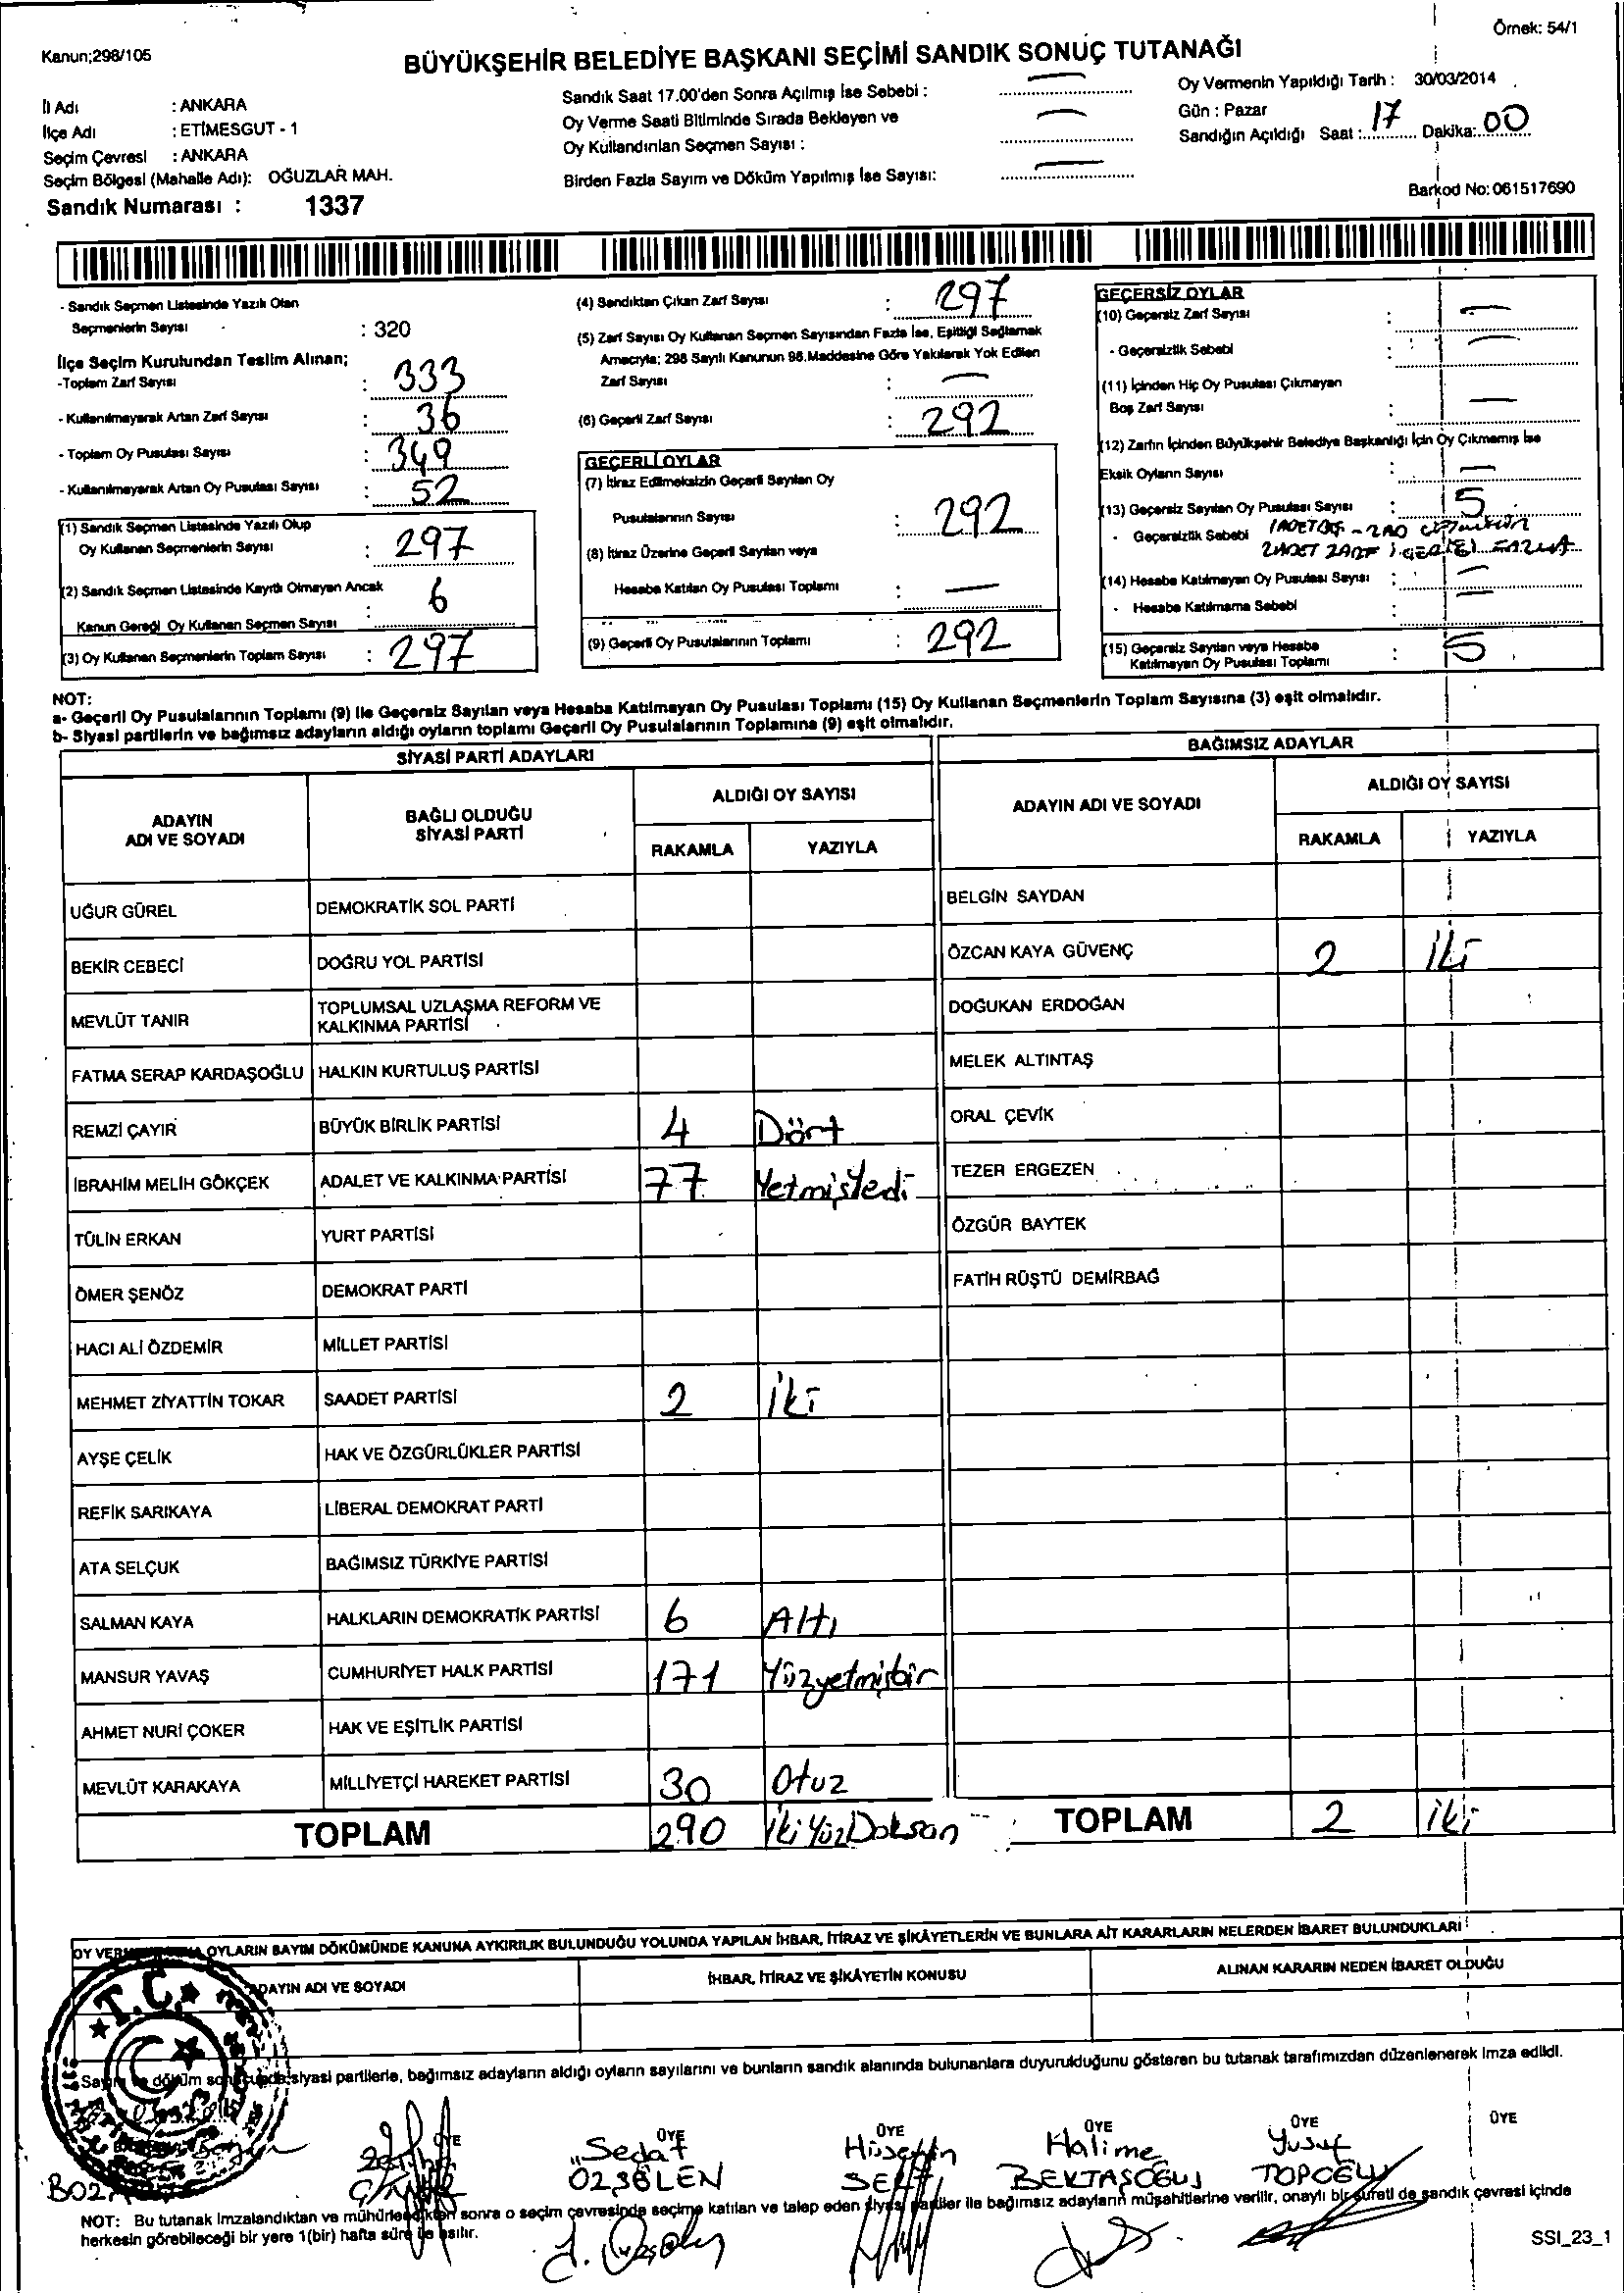 Örnek: 54/1
Kanun;298/105
BÜYÜKŞEHİR BELEDİYE BAŞKANI SEÇİMİ SANDIK SONUÇ TUTANAĞI
İl Adı : ANKARA
İlçe Adı : ETİMESGUT - 1
Seçim Çevresi : ANKARA
Seçim Bölgesi (Mahalle Adı): OĞUZLAR MAH.
Sandık Numarası : 1337
Sandık Saat 17.00'den Sonra Açılmış İse Sebebi :
Oy Verme Saati Bitiminde Sırada Bekleyen ve
Oy Kullandırılan Seçmen Sayısı :
Birden Fazla Sayım ve Döküm Yapılmış İse Sayısı:
Oy Vermenin Yapıldığı Tarih : 30/03/2014
Gün : Pazar
Sandığın Açıldığı Saat : 17 Dakika: 00
Barkod No: 061517690
- Sandık Seçmen Listesinde Yazılı Olan
Seçmenlerin Sayısı : 320
İlçe Seçim Kurulundan Teslim Alınan;
-Toplam Zarf Sayısı : 333
- Kullanılmayarak Artan Zarf Sayısı : 36
- Toplam Oy Pusulası Sayısı : 349
- Kullanılmayarak Artan Oy Pusulası Sayısı : 52
(1) Sandık Seçmen Listesinde Yazılı Olup
Oy Kullanan Seçmenlerin Sayısı : 297
(2) Sandık Seçmen Listesinde Kayıtlı Olmayan Ancak
Kanun Gereği Oy Kullanan Seçmen Sayısı : 6
(3) Oy Kullanan Seçmenlerin Toplam Sayısı : 297
(4) Sandıktan Çıkan Zarf Sayısı : 297
(5) Zarf Sayısı Oy Kullanan Seçmen Sayısından Fazla İse, Eşitliği Sağlamak
Amacıyla; 298 Sayılı Kanunun 98.Maddesine Göre Yakılarak Yok Edilen
Zarf Sayısı : —
(6) Geçerli Zarf Sayısı : 292
GEÇERLİ OYLAR
(7) İtiraz Edilmeksizin Geçerli Sayılan Oy
Pusulalarının Sayısı : 292
(8) İtiraz Üzerine Geçerli Sayılan veya
Hesaba Katılan Oy Pusulası Toplamı : —
(9) Geçerli Oy Pusulalarının Toplamı : 292
GEÇERSİZ OYLAR
(10) Geçersiz Zarf Sayısı : —
- Geçersizlik Sebebi :
(11) İçinden Hiç Oy Pusulası Çıkmayan
Boş Zarf Sayısı : —
(12) Zarfın İçinden Büyükşehir Belediye Başkanlığı İçin Oy Çıkmamış İse
Eksik Oyların Sayısı : —
(13) Geçersiz Sayılan Oy Pusulası Sayısı : 5
- Geçersizlik Sebebi
(14) Hesaba Katılmayan Oy Pusulası Sayısı : —
- Hesaba Katılmama Sebebi : —
(15) Geçersiz Sayılan veya Hesaba
Katılmayan Oy Pusulası Toplamı : 5
NOT:
a- Geçerli Oy Pusulalarının Toplamı (9) ile Geçersiz Sayılan veya Hesaba Katılmayan Oy Pusulası Toplamı (15) Oy Kullanan Seçmenlerin Toplam Sayısına (3) eşit olmalıdır.
b- Siyasi partilerin ve bağımsız adayların aldığı oyların toplamı Geçerli Oy Pusulalarının Toplamına (9) eşit olmalıdır.
SİYASİ PARTİ ADAYLARI
ADAYIN
ADI VE SOYADI
BAĞLI OLDUĞU
SİYASİ PARTİ
ALDIĞI OY SAYISI
RAKAMLA YAZIYLA
UĞUR GÜREL DEMOKRATİK SOL PARTİ
BEKİR CEBECİ DOĞRU YOL PARTİSİ
MEVLÜT TANIR TOPLUMSAL UZLAŞMA REFORM VE
KALKINMA PARTİSİ
FATMA SERAP KARDAŞOĞLU HALKIN KURTULUŞ PARTİSİ
REMZİ ÇAYIR BÜYÜK BİRLİK PARTİSİ 4 Dört
İBRAHİM MELİH GÖKÇEK ADALET VE KALKINMA PARTİSİ 77 Yetmişyedi
TÜLİN ERKAN YURT PARTİSİ
ÖMER ŞENÖZ DEMOKRAT PARTİ
HACI ALİ ÖZDEMİR MİLLET PARTİSİ
MEHMET ZİYATTİN TOKAR SAADET PARTİSİ 2 iki
AYŞE ÇELİK HAK VE ÖZGÜRLÜKLER PARTİSİ
REFİK SARIKAYA LİBERAL DEMOKRAT PARTİ
ATA SELÇUK BAĞIMSIZ TÜRKİYE PARTİSİ
SALMAN KAYA HALKLARIN DEMOKRATİK PARTİSİ 6 Altı
MANSUR YAVAŞ CUMHURİYET HALK PARTİSİ 171 Yüzyetmişbir
AHMET NURİ ÇOKER HAK VE EŞİTLİK PARTİSİ
MEVLÜT KARAKAYA MİLLİYETÇİ HAREKET PARTİSİ 30 Otuz
TOPLAM 290 İkiYüzDoksan
BAĞIMSIZ ADAYLAR
ADAYIN ADI VE SOYADI
ALDIĞI OY SAYISI
RAKAMLA YAZIYLA
BELGİN SAYDAN
ÖZCAN KAYA GÜVENÇ 2 iki
DOĞUKAN ERDOĞAN
MELEK ALTINTAŞ
ORAL ÇEVİK
TEZER ERGEZEN
ÖZGÜR BAYTEK
FATİH RÜŞTÜ DEMİRBAĞ
TOPLAM 2 iki
OYLARIN SAYIM DÖKÜMÜNDE KANUNA AYKIRILIK BULUNDUĞU YOLUNDA YAPILAN İHBAR, İTİRAZ VE ŞİKÂYETLERİN VE BUNLARA AİT KARARLARIN NELERDEN İBARET BULUNDUKLARI
ADAYIN ADI VE SOYADI İHBAR, İTİRAZ VE ŞİKÂYETİN KONUSU ALINAN KARARIN NEDEN İBARET OLDUĞU
T.C.
Sayım ve döküm sonucunda; siyasi partilerle, bağımsız adayların aldığı oyların sayılarını ve bunların sandık alanında bulunanlara duyurulduğunu gösteren bu tutanak tarafımızdan düzenlenerek imza edildi.
ÜYE ÜYE ÜYE ÜYE ÜYE ÜYE
Sedat Hüseyin Halime Yusuf
ÖZŞÖLEN BEKTAŞOĞLU TOPOĞLU
NOT: Bu tutanak imzalandıktan ve mühürlendikten sonra o seçim çevresinde seçime katılan ve talep eden siyasi partiler ile bağımsız adayların müşahitlerine verilir, onaylı bir sureti de sandık çevresi içinde
herkesin görebileceği bir yere 1(bir) hafta süre ile asılır.
SSI_23_1